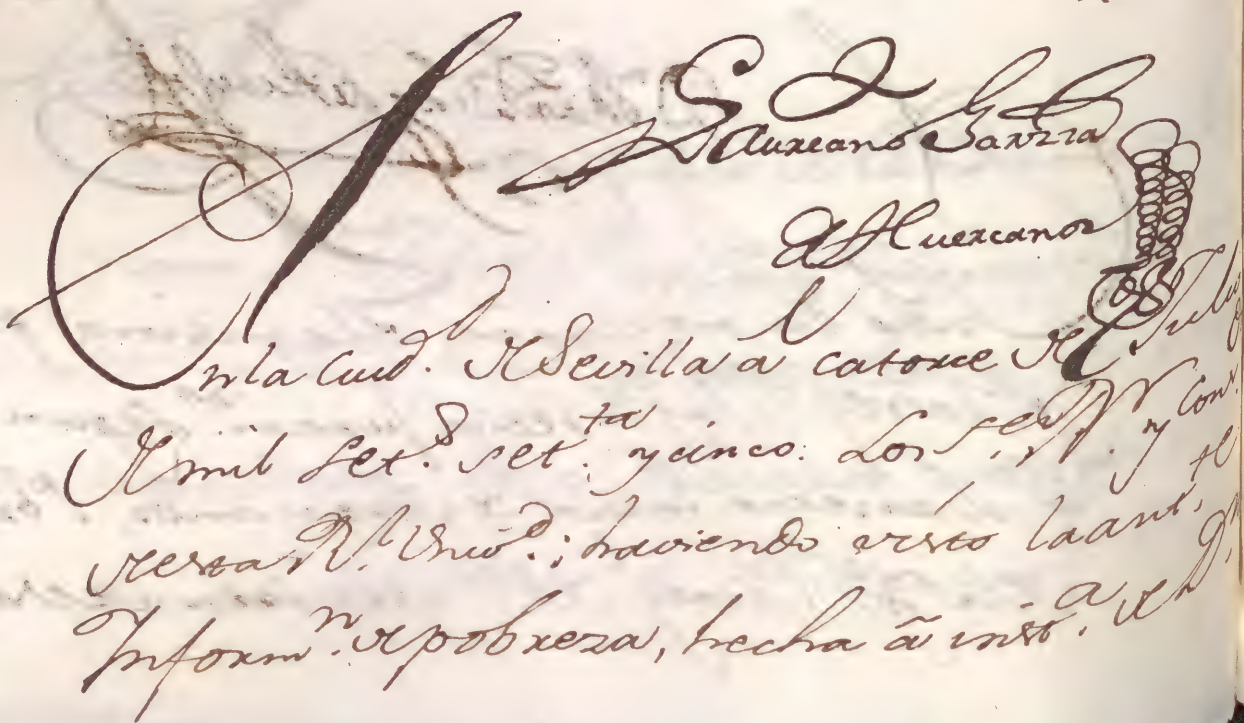 Laureano Garzia
de Huercanos
En la Ciud.d de Sevilla a catorce de Julio
de mil Set.s set.ta y cinco: Los S.res R.r y Cons.
de esta R.l Univ.d; haviendo visto la ant.te
Inform.n de pobreza, hecha â inst.a de D.n